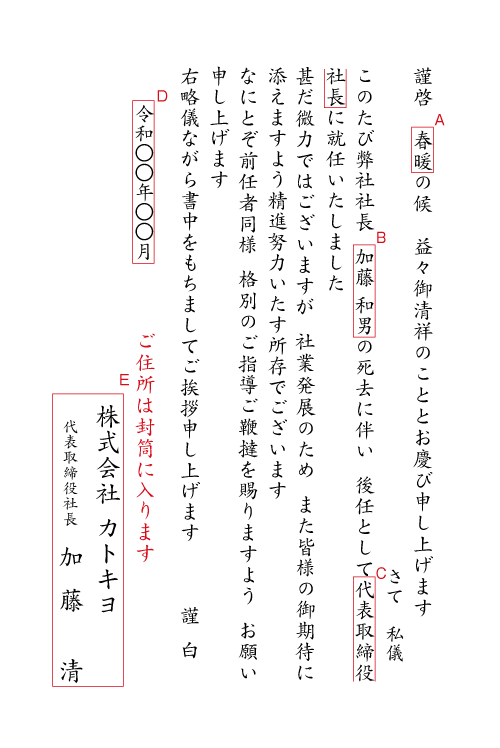 謹啓　春暖の候　益々御清祥のこととお慶び申し上げます
A
さて　私儀
このたび弊社社長　加藤　和男の死去に伴い　後任として代表取締役
B
C
社長に就任いたしました
甚だ微力ではございますが　社業発展のため　また皆様の御期待に
添えますよう精進努力いたす所存でございます
なにとぞ前任者同様　格別のご指導ご鞭撻を賜りますよう　お願い
申し上げます
右略儀ながら書中をもちましてご挨拶申し上げます　謹　白
D
令和〇〇年〇〇月
ご住所は封筒に入ります
E
株式会社　カトキヨ
代表取締役社長　加　藤　　清